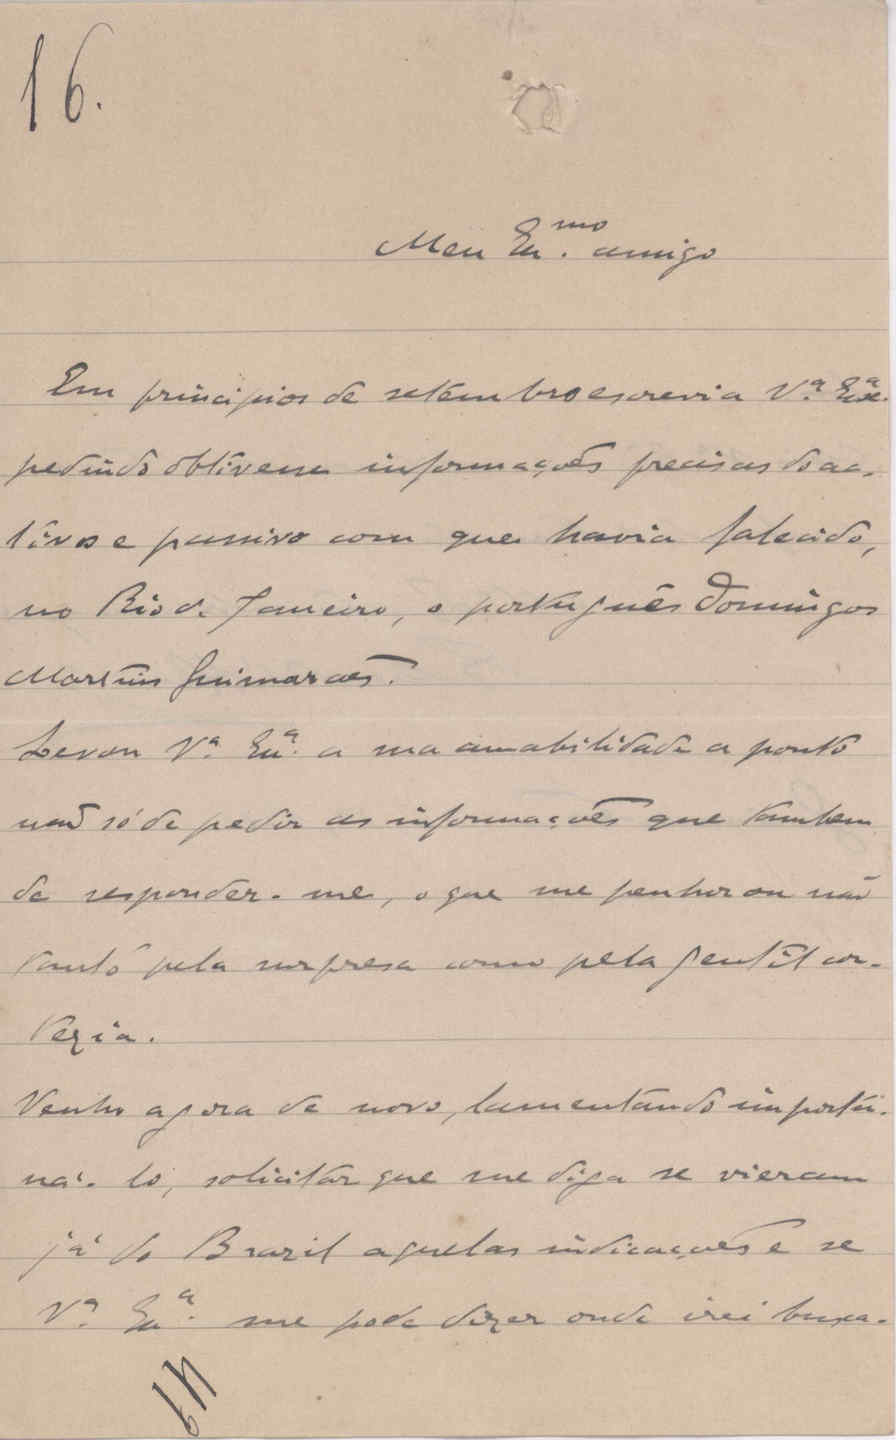 16.
Meu Ex.mo amigo
Em principios de setembro escrevi a V.ª Ex.ª
pedindo obtivesse informações precisas do ac-
tivo e passivo com que havia falecido,
no Rio de Janeiro, o português Domingos
Martins Guimarães.
Levou V.ª Ex.ª a sua amabilidade a ponto
não só de pedir as informações que tambem
de responder-me, o que me penhorou não
tanto pela surpresa como pela gentil cor-
tezia.
Venho agora de novo, lamentando importu-
na-lo, solicitar que me diga se vieram
já do Brazil aquelas indicações e se
V.ª Ex.ª me pode dizer onde irei busca-